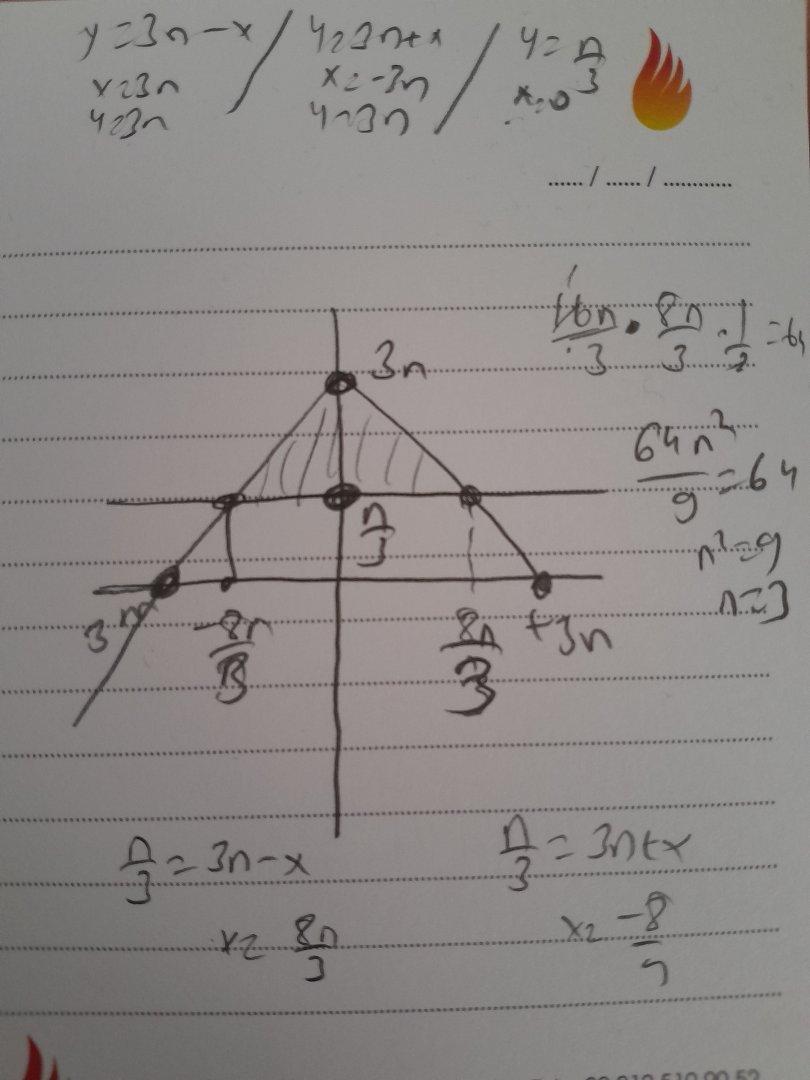 y=3n-x / y=3n+x / y=n/3
x=3n x=-3n x=0
y=3n y=3n
...... / ...... / ............
16n/3 · 8n/3 · 1/2 = 64
3n
64n²/9 = 64
n/3
n²=9
n=3
3n -8n/3 8n/3 +3n
n/3 = 3n-x n/3 = 3n+x
x= 8n/3 x= -8/